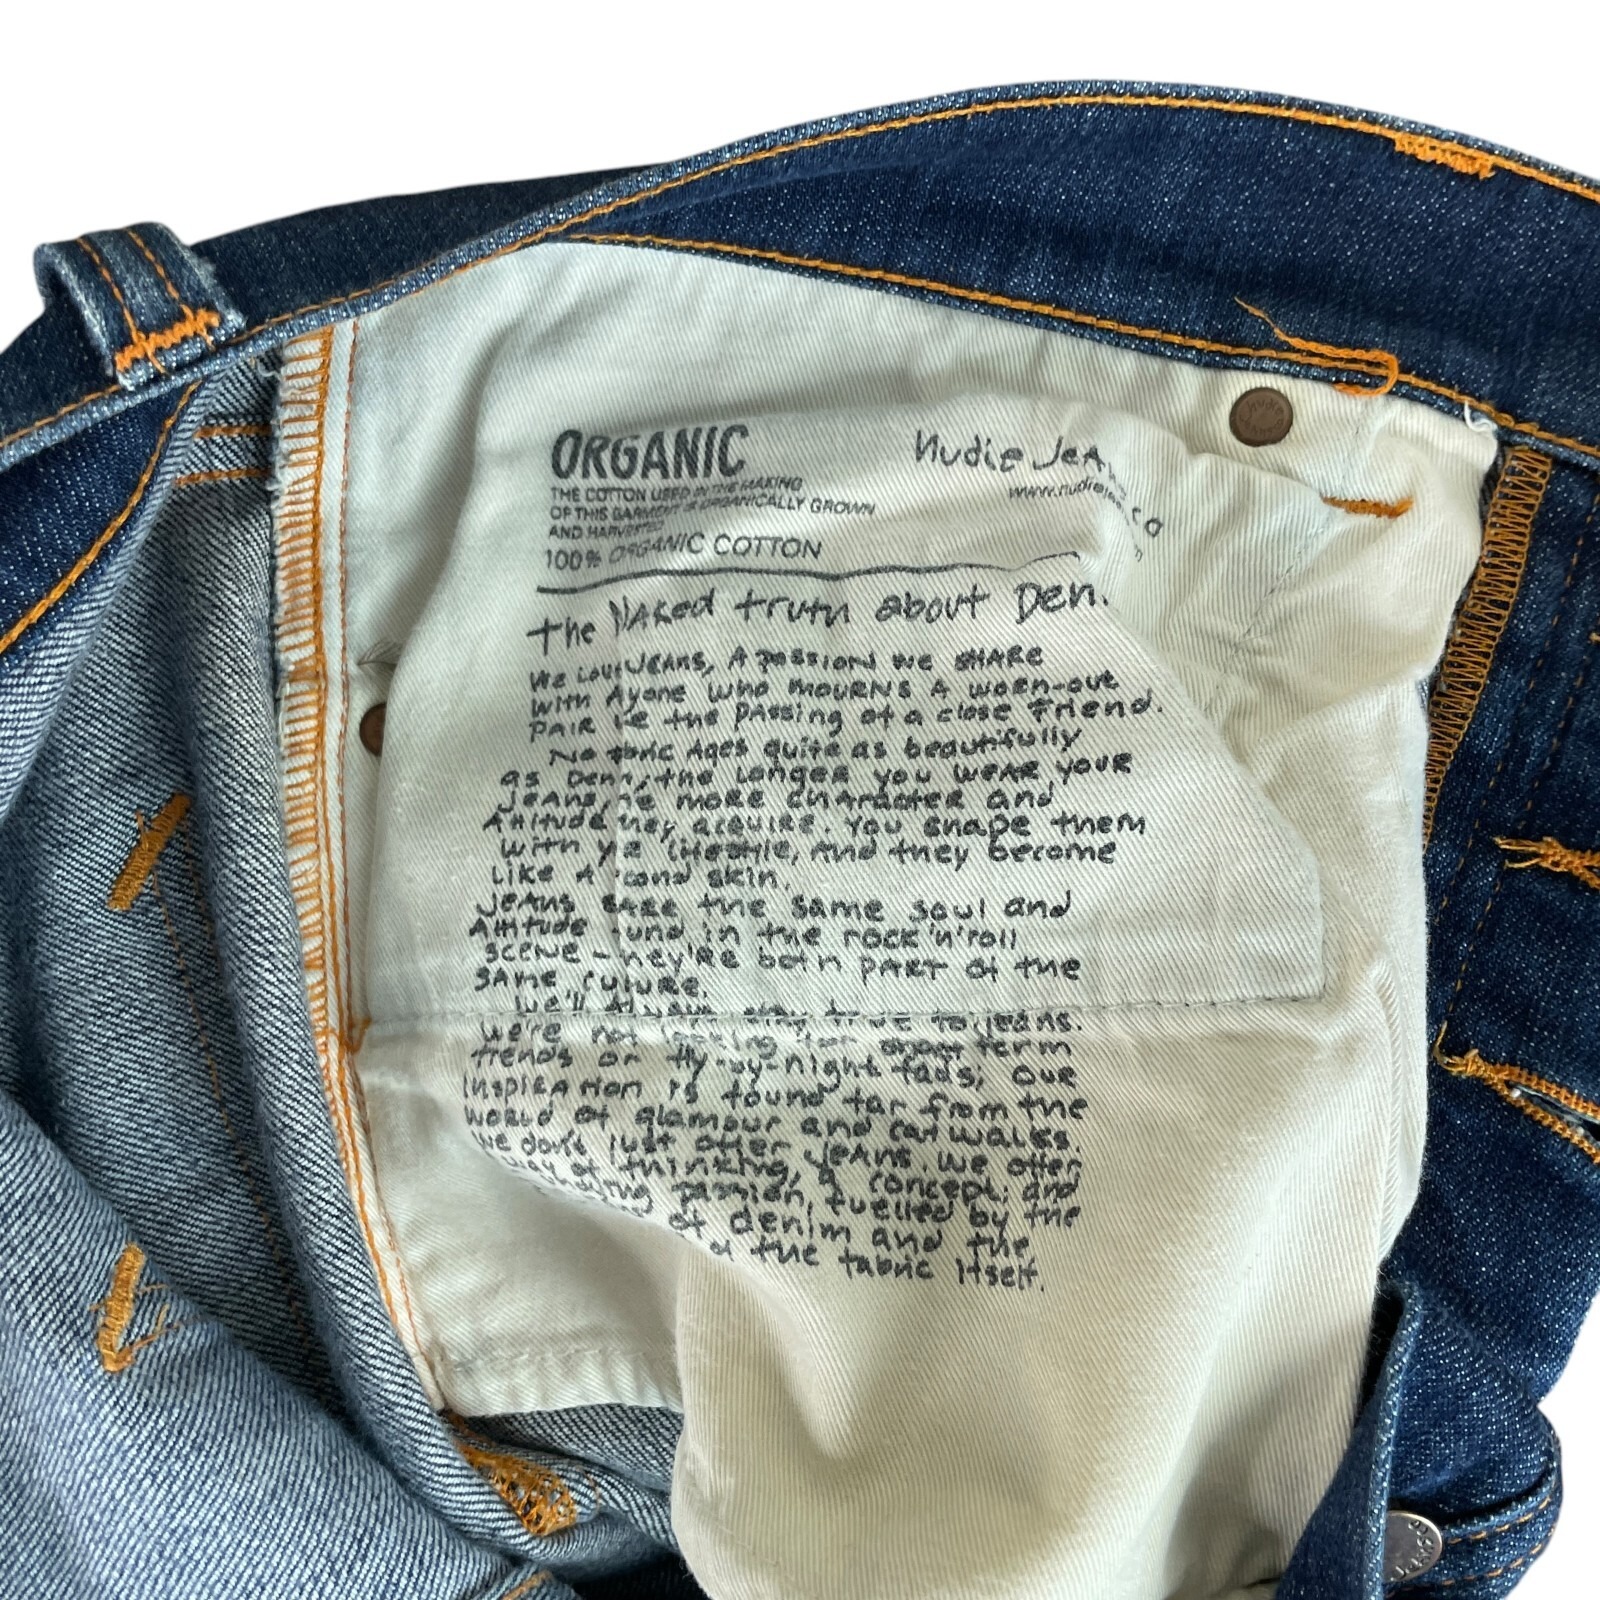 ORGANIC
THE COTTON USED IN THE MAKING
OF THIS GARMENT IS ORGANICALLY GROWN
AND HARVESTED
100% ORGANIC COTTON
Nudie Jeans
The Naked truth about Den
We Love Jeans, A passion we share
with Ayone who mourns a worn-out
pair the passing of a close friend.
No Ages quite as beautifully
as the longer you wear your
Jeans, more character and
Attitude they acquire. You shape them
with lifestyle, and they become
Like A skin.
Jeans the same soul and
Attitude in the rock'n'roll
scene - they're both part of the
same culture.
We'll Always stay true to jeans.
We're not looking for short term
trends or fly-by-night fads, our
Inspiration is found far from the
world of glamour and catwalks.
We don't just offer jeans. We offer
way of thinking, a concept and
passion, fuelled by the
of denim and the
the fabric itself.